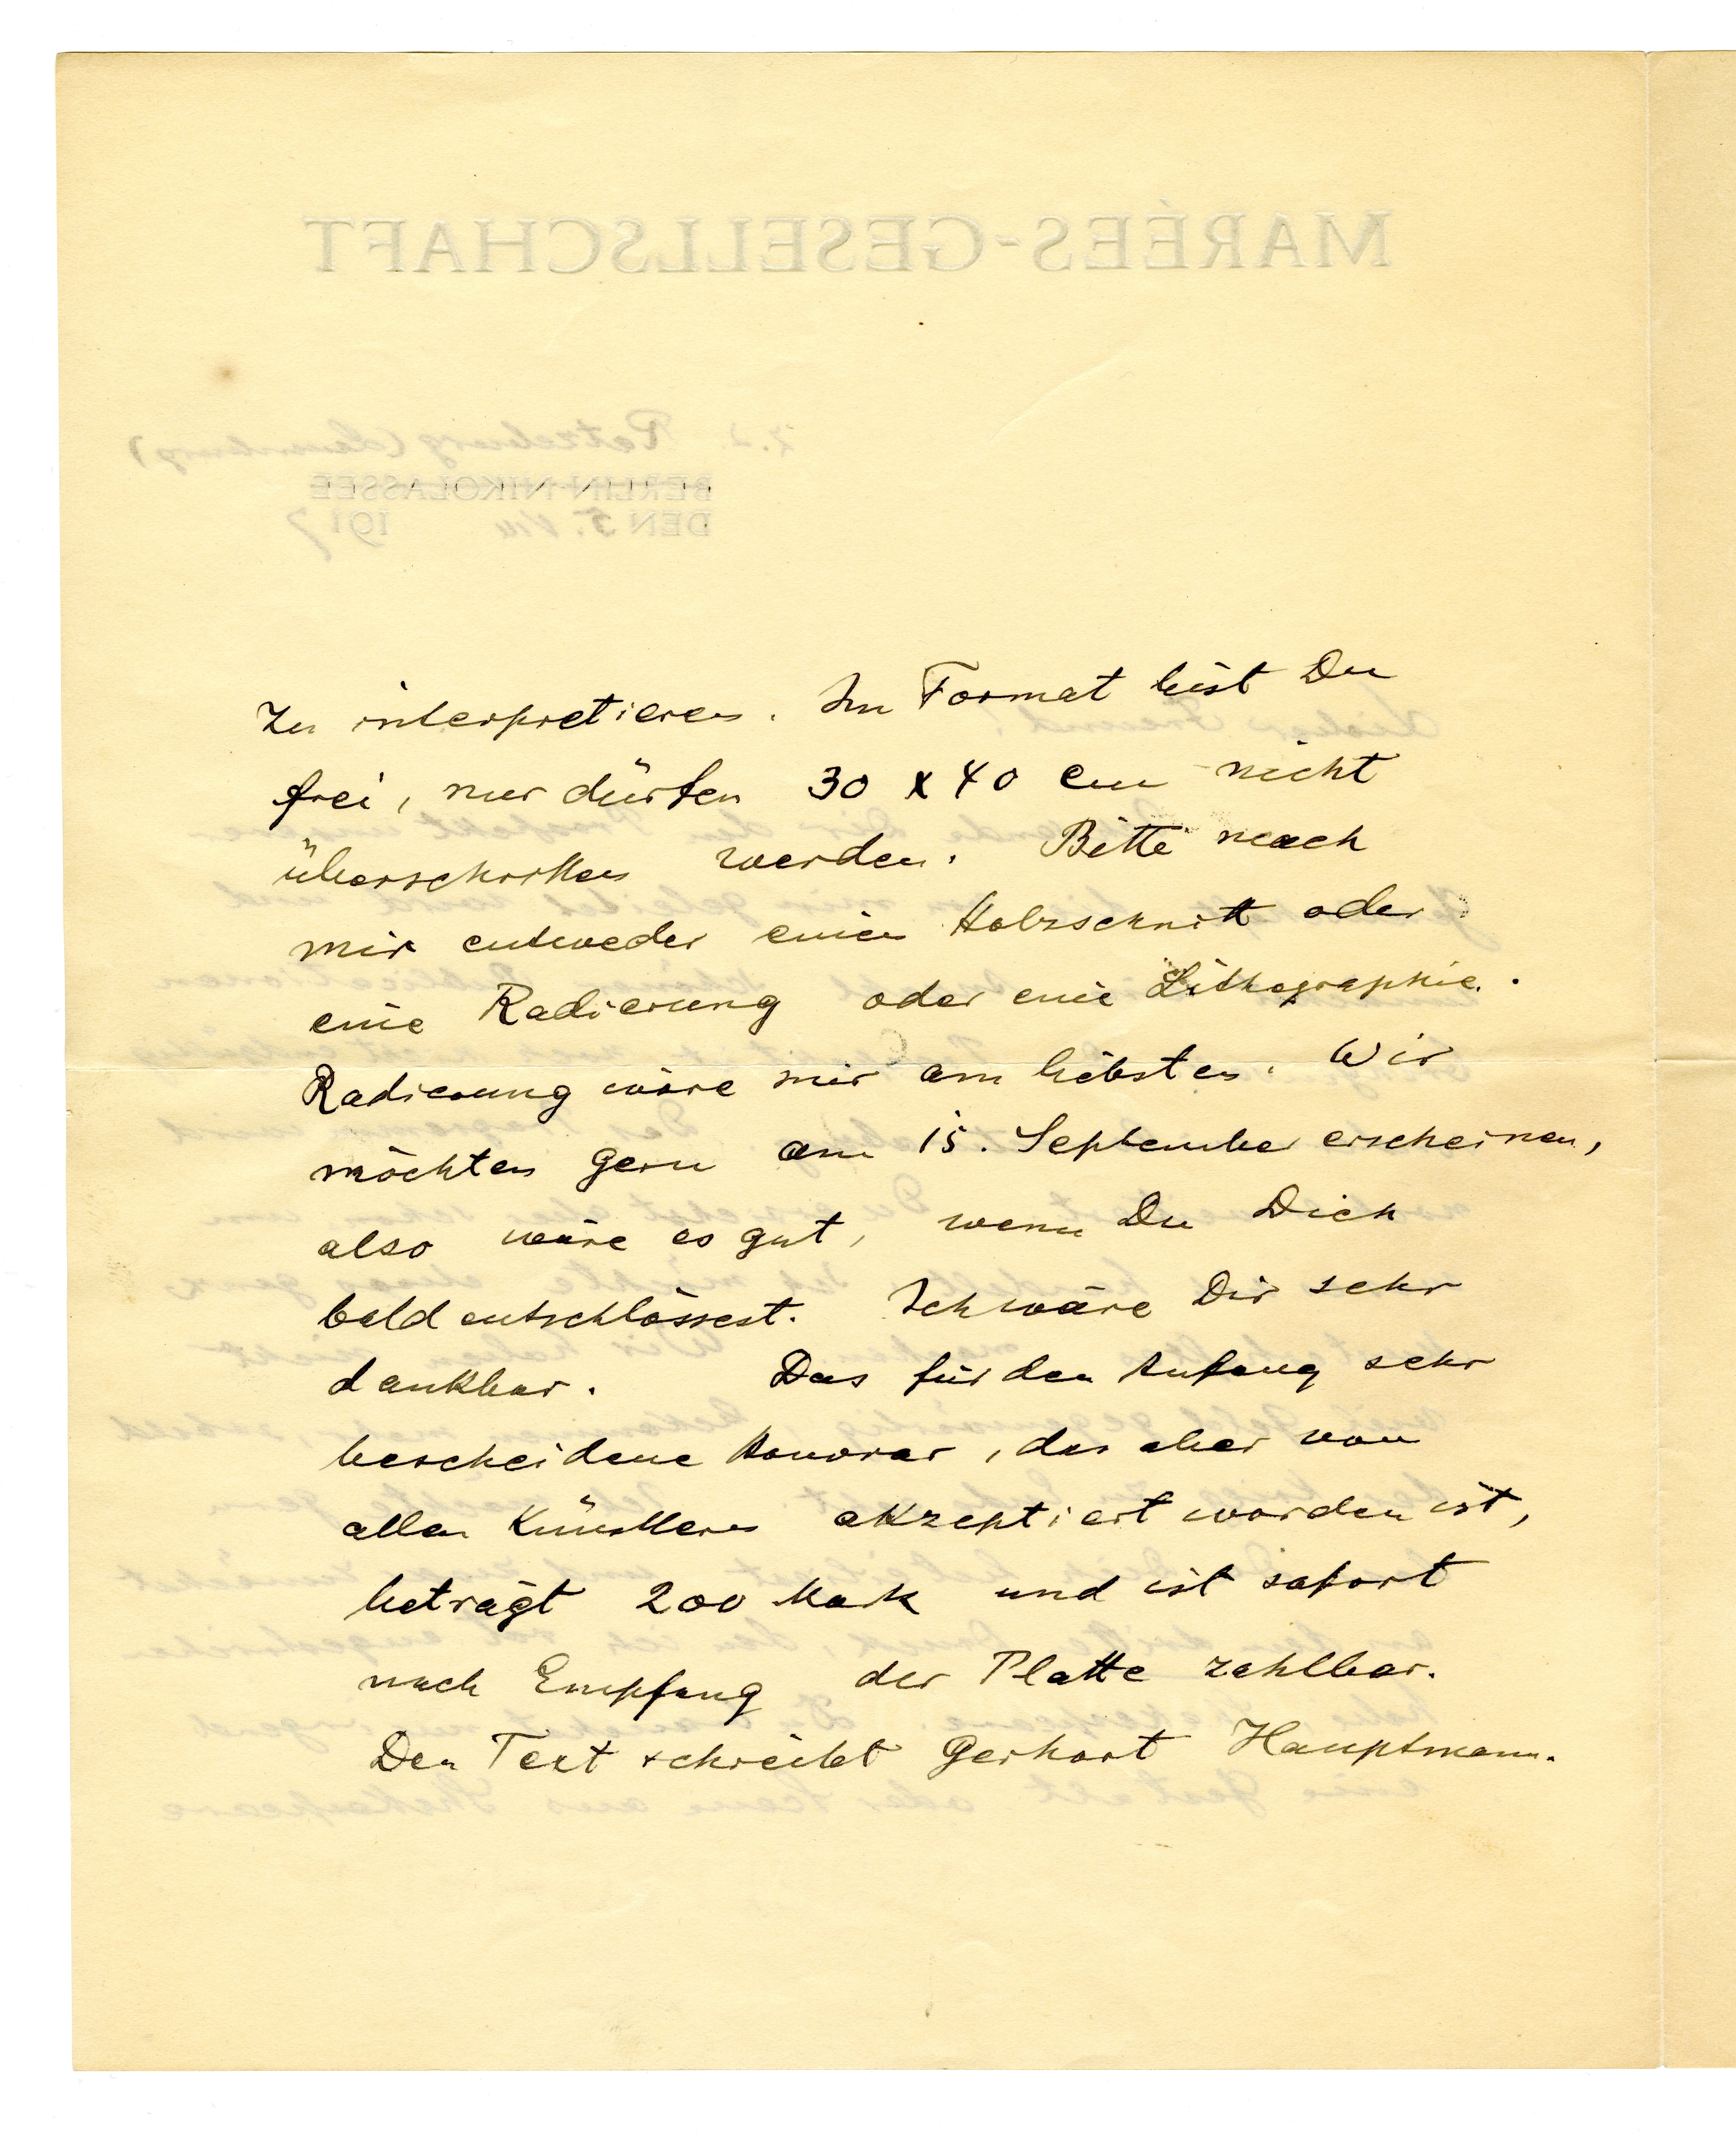 MARÉES-GESELLSCHAFT
z.Z. Ratzeburg (Lauenburg)
BERLIN-NIKOLASSEE
DEN 5. VIII 1917
zu interpretieren. Im Format bist Du
frei, nur dürfen 30 x 40 cm nicht
überschritten werden. Bitte mach
mir entweder einen Holzschnitt oder
eine Radierung oder eine Lithographie.
Radierung wäre mir am liebsten. Wir
möchten gern am 15. September erscheinen,
also wäre es gut, wenn Du Dich
bald entschlössest. Ich wäre Dir sehr
dankbar. Das für den Anfang sehr
bescheidene Honorar, das aber von
allen Künstlern akzeptiert worden ist,
beträgt 200 Mark und ist sofort
nach Empfang der Platte zahlbar.
Den Text schreibt Gerhart Hauptmann.